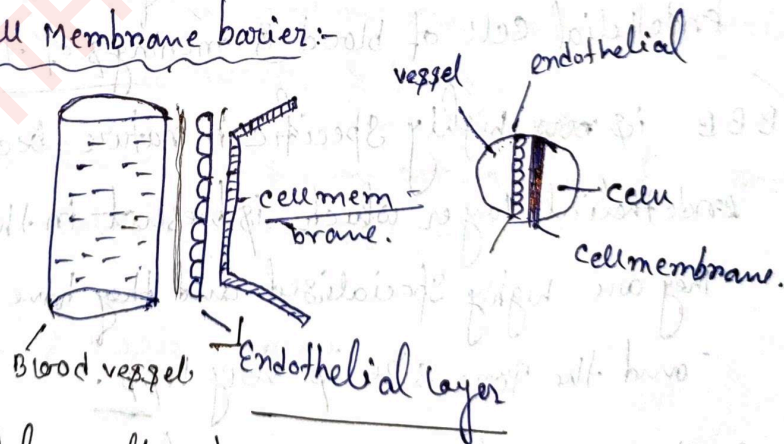 Membrane barier:-
vessel
endothelial
cellmem
brane.
cell
cellmembrane.
Blood vessel
Endothelial layer